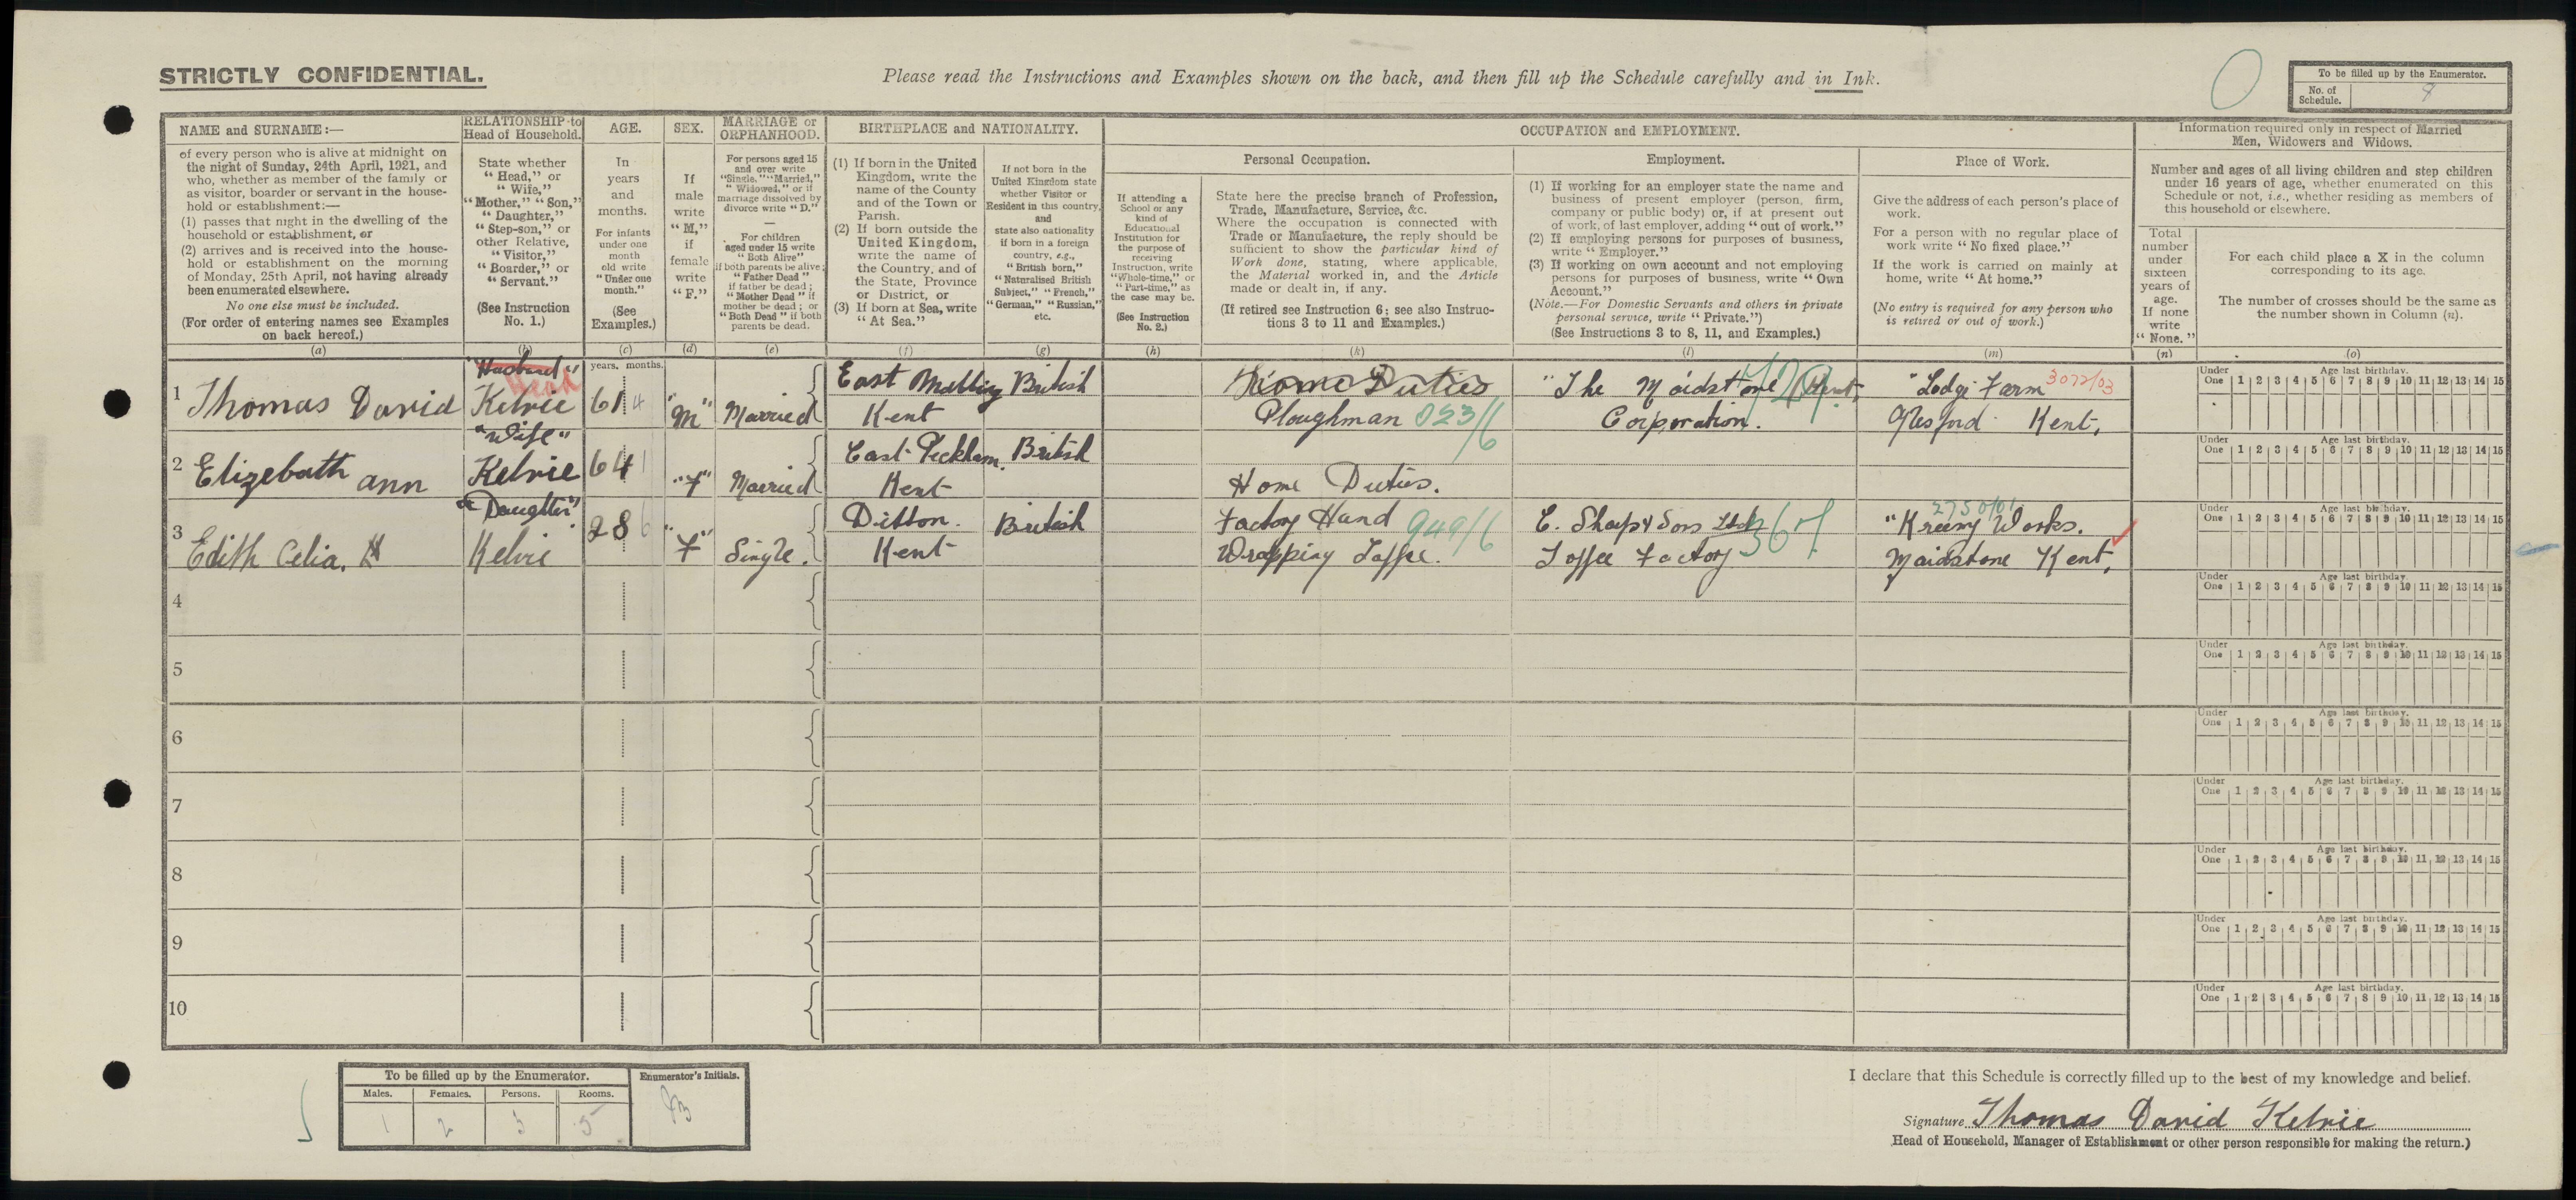 STRICTLY CONFIDENTIAL.
Please read the Instructions and Examples shown on the back, and then fill up the Schedule carefully and in Ink.
To be filled up by the Enumerator.
No. of Schedule.
NAME and SURNAME:—
of every person who is alive at midnight on
the night of Sunday, 24th April, 1921, and
who, whether as member of the family or
as visitor, boarder or servant in the house-
hold or establishment:—
(1) passes that night in the dwelling of the
household or establishment, or
(2) arrives and is received into the house-
hold or establishment on the morning
of Monday, 25th April, not having already
been enumerated elsewhere.
No one else must be included.
(For order of entering names see Examples
on back hereof.)
(a)
RELATIONSHIP to
Head of Household.
State whether
"Head," or
"Wife,"
"Mother," "Son,"
"Daughter,"
"Step-son," or
other Relative,
"Visitor,"
"Boarder," or
"Servant."
(See Instruction
No. 1.)
(b)
AGE.
In
years
and
months.
For infants
under one
month
old write
"Under one
month."
(See
Examples.)
(c)
SEX.
If
male
write
"M,"
if
female
write
"F."
(d)
MARRIAGE or
ORPHANHOOD.
For persons aged 15
and over write
"Single," "Married,"
"Widowed," or if
marriage dissolved by
divorce write "D."
For children
aged under 15 write
"Both Alive"
if both parents be alive;
"Father Dead"
if father be dead;
"Mother Dead" if
mother be dead; or
"Both Dead" if both
parents be dead.
(e)
BIRTHPLACE and NATIONALITY.
(1) If born in the United
Kingdom, write the
name of the County
and of the Town or
Parish.
(2) If born outside the
United Kingdom,
write the name of
the Country, and of
the State, Province
or District, or
(3) If born at Sea, write
"At Sea."
(f)
If not born in the
United Kingdom state
whether Visitor or
Resident in this country,
and
state also nationality
if born in a foreign
country, e.g.,
"British born,"
"Naturalised British
Subject," "French,"
"German," "Russian,"
etc.
(g)
OCCUPATION and EMPLOYMENT.
Personal Occupation.
If attending a
School or any
kind of
Educational
Institution for the
purpose of
receiving
Instruction, write
"Whole-time," or
"Part-time," as
the case may be.
(See Instruction
No. 2.)
(h)
State here the precise branch of Profession,
Trade, Manufacture, Service, &c.
Where the occupation is connected with
Trade or Manufacture, the reply should be
sufficient to show the particular kind of
Work done, stating, where applicable,
the Material worked in, and the Article
made or dealt in, if any.
(If retired see Instruction 6; see also Instruc-
tions 3 to 11 and Examples.)
(k)
Employment.
(1) If working for an employer state the name and
business of present employer (person, firm,
company or public body) or, if at present out
of work, of last employer, adding "out of work."
(2) If employing persons for purposes of business,
write "Employer."
(3) If working on own account and not employing
persons for purposes of business, write "Own
Account."
(Note.—For Domestic Servants and others in private
personal service, write "Private.")
(See Instructions 3 to 8, 11, and Examples.)
(l)
Place of Work.
Give the address of each person's place of
work.
For a person with no regular place of
work write "No fixed place."
If the work is carried on mainly at
home, write "At home."
(No entry is required for any person who
is retired or out of work.)
(m)
Information required only in respect of Married
Men, Widowers and Widows.
Number and ages of all living children and step children
under 16 years of age, whether enumerated on this
Schedule or not, i.e., whether residing as members of
this household or elsewhere.
Total
number
under
sixteen
years of
age.
If none
write
"None."
(n)
For each child place a X in the column
corresponding to its age.
The number of crosses should be the same as
the number shown in Column (n).
(o)
years. months.
"Husband"
Head
1 Thomas David Kelvie 61 4 "M" Married East Malling Kent British
Home Duties
Ploughman 023/6
"The Maidstone Kent,
Corporation.
"Lodge Farm 3072/03
Kent,
Under One Age last birthday. 1 2 3 4 5 6 7 8 9 10 11 12 13 14 15
"Wife"
2 Elizebath ann Kelvie 64 1 "F" Married East Peckham Kent British
Home Duties.
Under One Age last birthday. 1 2 3 4 5 6 7 8 9 10 11 12 13 14 15
"Daughter"
3 Edith Celia. Kelvie 28 6 "F" Single. Ditton. Kent British
Factory Hand 949/6
Wrapping Toffee.
E. Sharp & Sons Ltd 367
Toffee Factory
2750/01
"Kreemy Works.
Maidstone Kent,
Under One Age last birthday. 1 2 3 4 5 6 7 8 9 10 11 12 13 14 15
4
Under One Age last birthday. 1 2 3 4 5 6 7 8 9 10 11 12 13 14 15
5
Under One Age last birthday. 1 2 3 4 5 6 7 8 9 10 11 12 13 14 15
6
Under One Age last birthday. 1 2 3 4 5 6 7 8 9 10 11 12 13 14 15
7
Under One Age last birthday. 1 2 3 4 5 6 7 8 9 10 11 12 13 14 15
8
Under One Age last birthday. 1 2 3 4 5 6 7 8 9 10 11 12 13 14 15
9
Under One Age last birthday. 1 2 3 4 5 6 7 8 9 10 11 12 13 14 15
10
Under One Age last birthday. 1 2 3 4 5 6 7 8 9 10 11 12 13 14 15
To be filled up by the Enumerator.
Enumerator's Initials.
Males. Females. Persons. Rooms.
1 2 3 5
I declare that this Schedule is correctly filled up to the best of my knowledge and belief.
Signature Thomas David Kelvie
Head of Household, Manager of Establishment or other person responsible for making the return.)